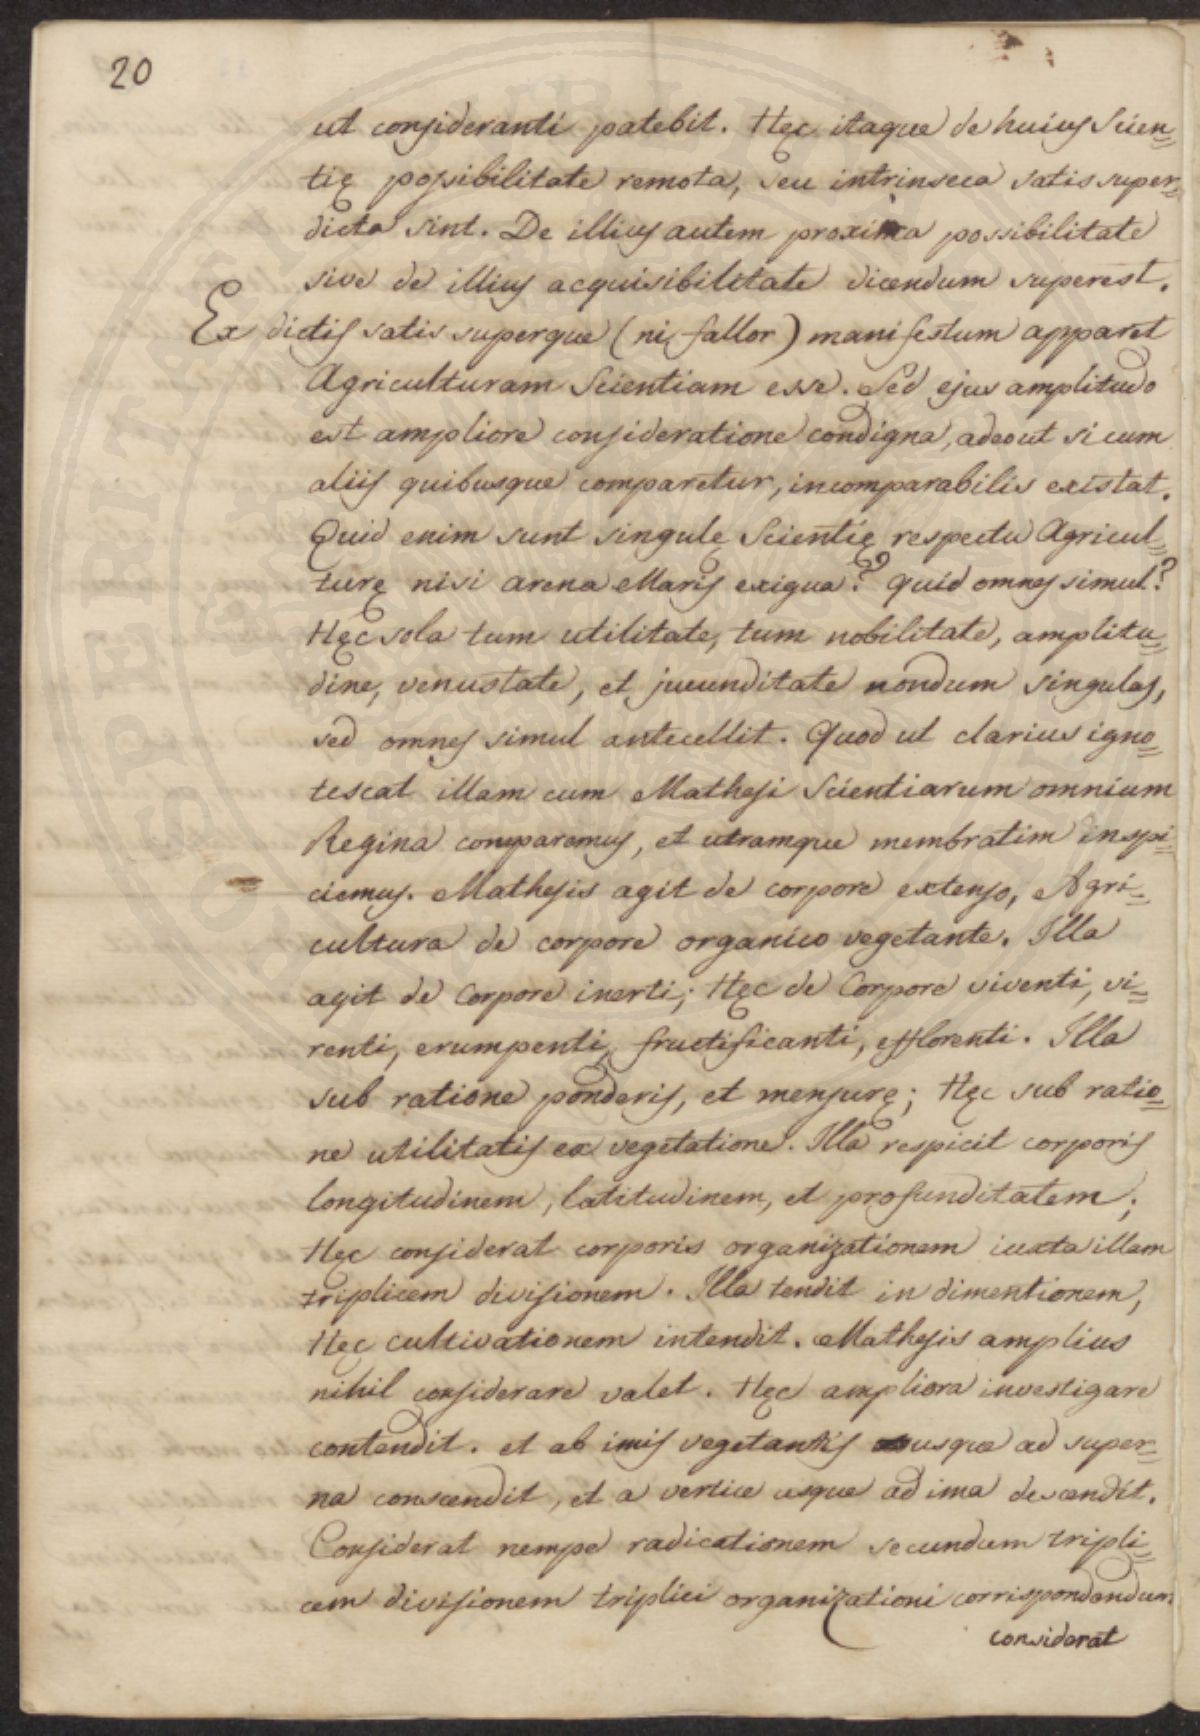 20
ut consideranti patebit. Hęc itaque de huius Scien=
tię possibilitate remota, seu intrinseca satis super=
dicta sint. De illius autem proxima possibilitate
sive de illius acquisibilitate dicendum superest.
Ex dictis satis superque (ni fallor) manifestum apparet
Agriculturam Scientiam esse. Sed ejus amplitudo
est ampliore consideratione condigna, adeout si cum
aliis quibusque comparetur, incomparabilis existat.
Quid enim sunt singulę Scientię respectu Agricul=
turę nisi arena Maris exigua? quid omnes simul?
Hęc sola tum utilitate, tum nobilitate, amplitu=
dine, venustate, et jucunditate nondum singulas,
sed omnes simul antecellit. Quod ut clarius igno=
tescat illam cum Mathesi Scientiarum omnium
Regina comparemus, et utramque membratim inspi=
ciemus. Mathesis agit de corpore extenso, Agri=
cultura de corpore organico vegetante. Illa
agit de Corpore inerti; Hęc de Corpore viventi, vi=
renti, erumpenti, fructificanti, efflorenti. Illa
sub ratione ponderis, et mensurę; Hęc sub ratio=
ne utilitatis ex vegetatione. Illa respicit corporis
longitudinem, latitudinem, et profunditatem;
Hęc considerat corporis organizationem iuxta illam
triplicem divisionem. Illa tendit in dimentionem,
Hęc cultivationem intendit. Mathesis amplius
nihil considerare valet. Hęc ampliora investigare
contendit. et ab imis vegetantis usque ad super=
na conscendit, et a vertice usque ad ima descendit.
Considerat nempe radicationem secundum tripli=
cem divisionem triplici organizationi corrispondendum
considerat